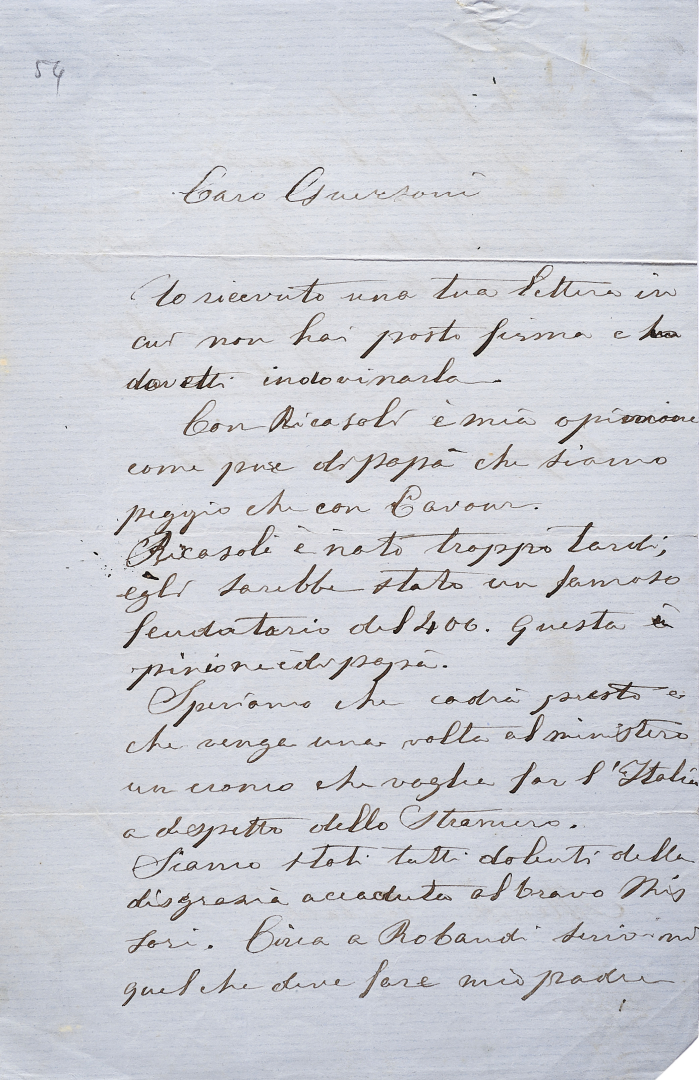 54
Caro Guerzoni
Io ricevuto una tua lettera in
cui non hai posto firma e ho
dovetti indovinarla.
Con Ricasoli è mia opinione
come pure di papà che siamo
peggio che con Cavour.
Ricasoli è nato troppo tardi,
egli sarebbe stato un famoso
feudatario del 400. Questa è
pinione è di papà.
Speriamo che cadrà presto e
che venga una volta al ministero
un uomo che voglia far l'Italia
a dispetto dello Straniero.
Siamo stati tutti dolenti della
disgrazia accaduta al bravo Mis
sori. Circa a Robaudi scrivimi
quel che deve fare mio padre